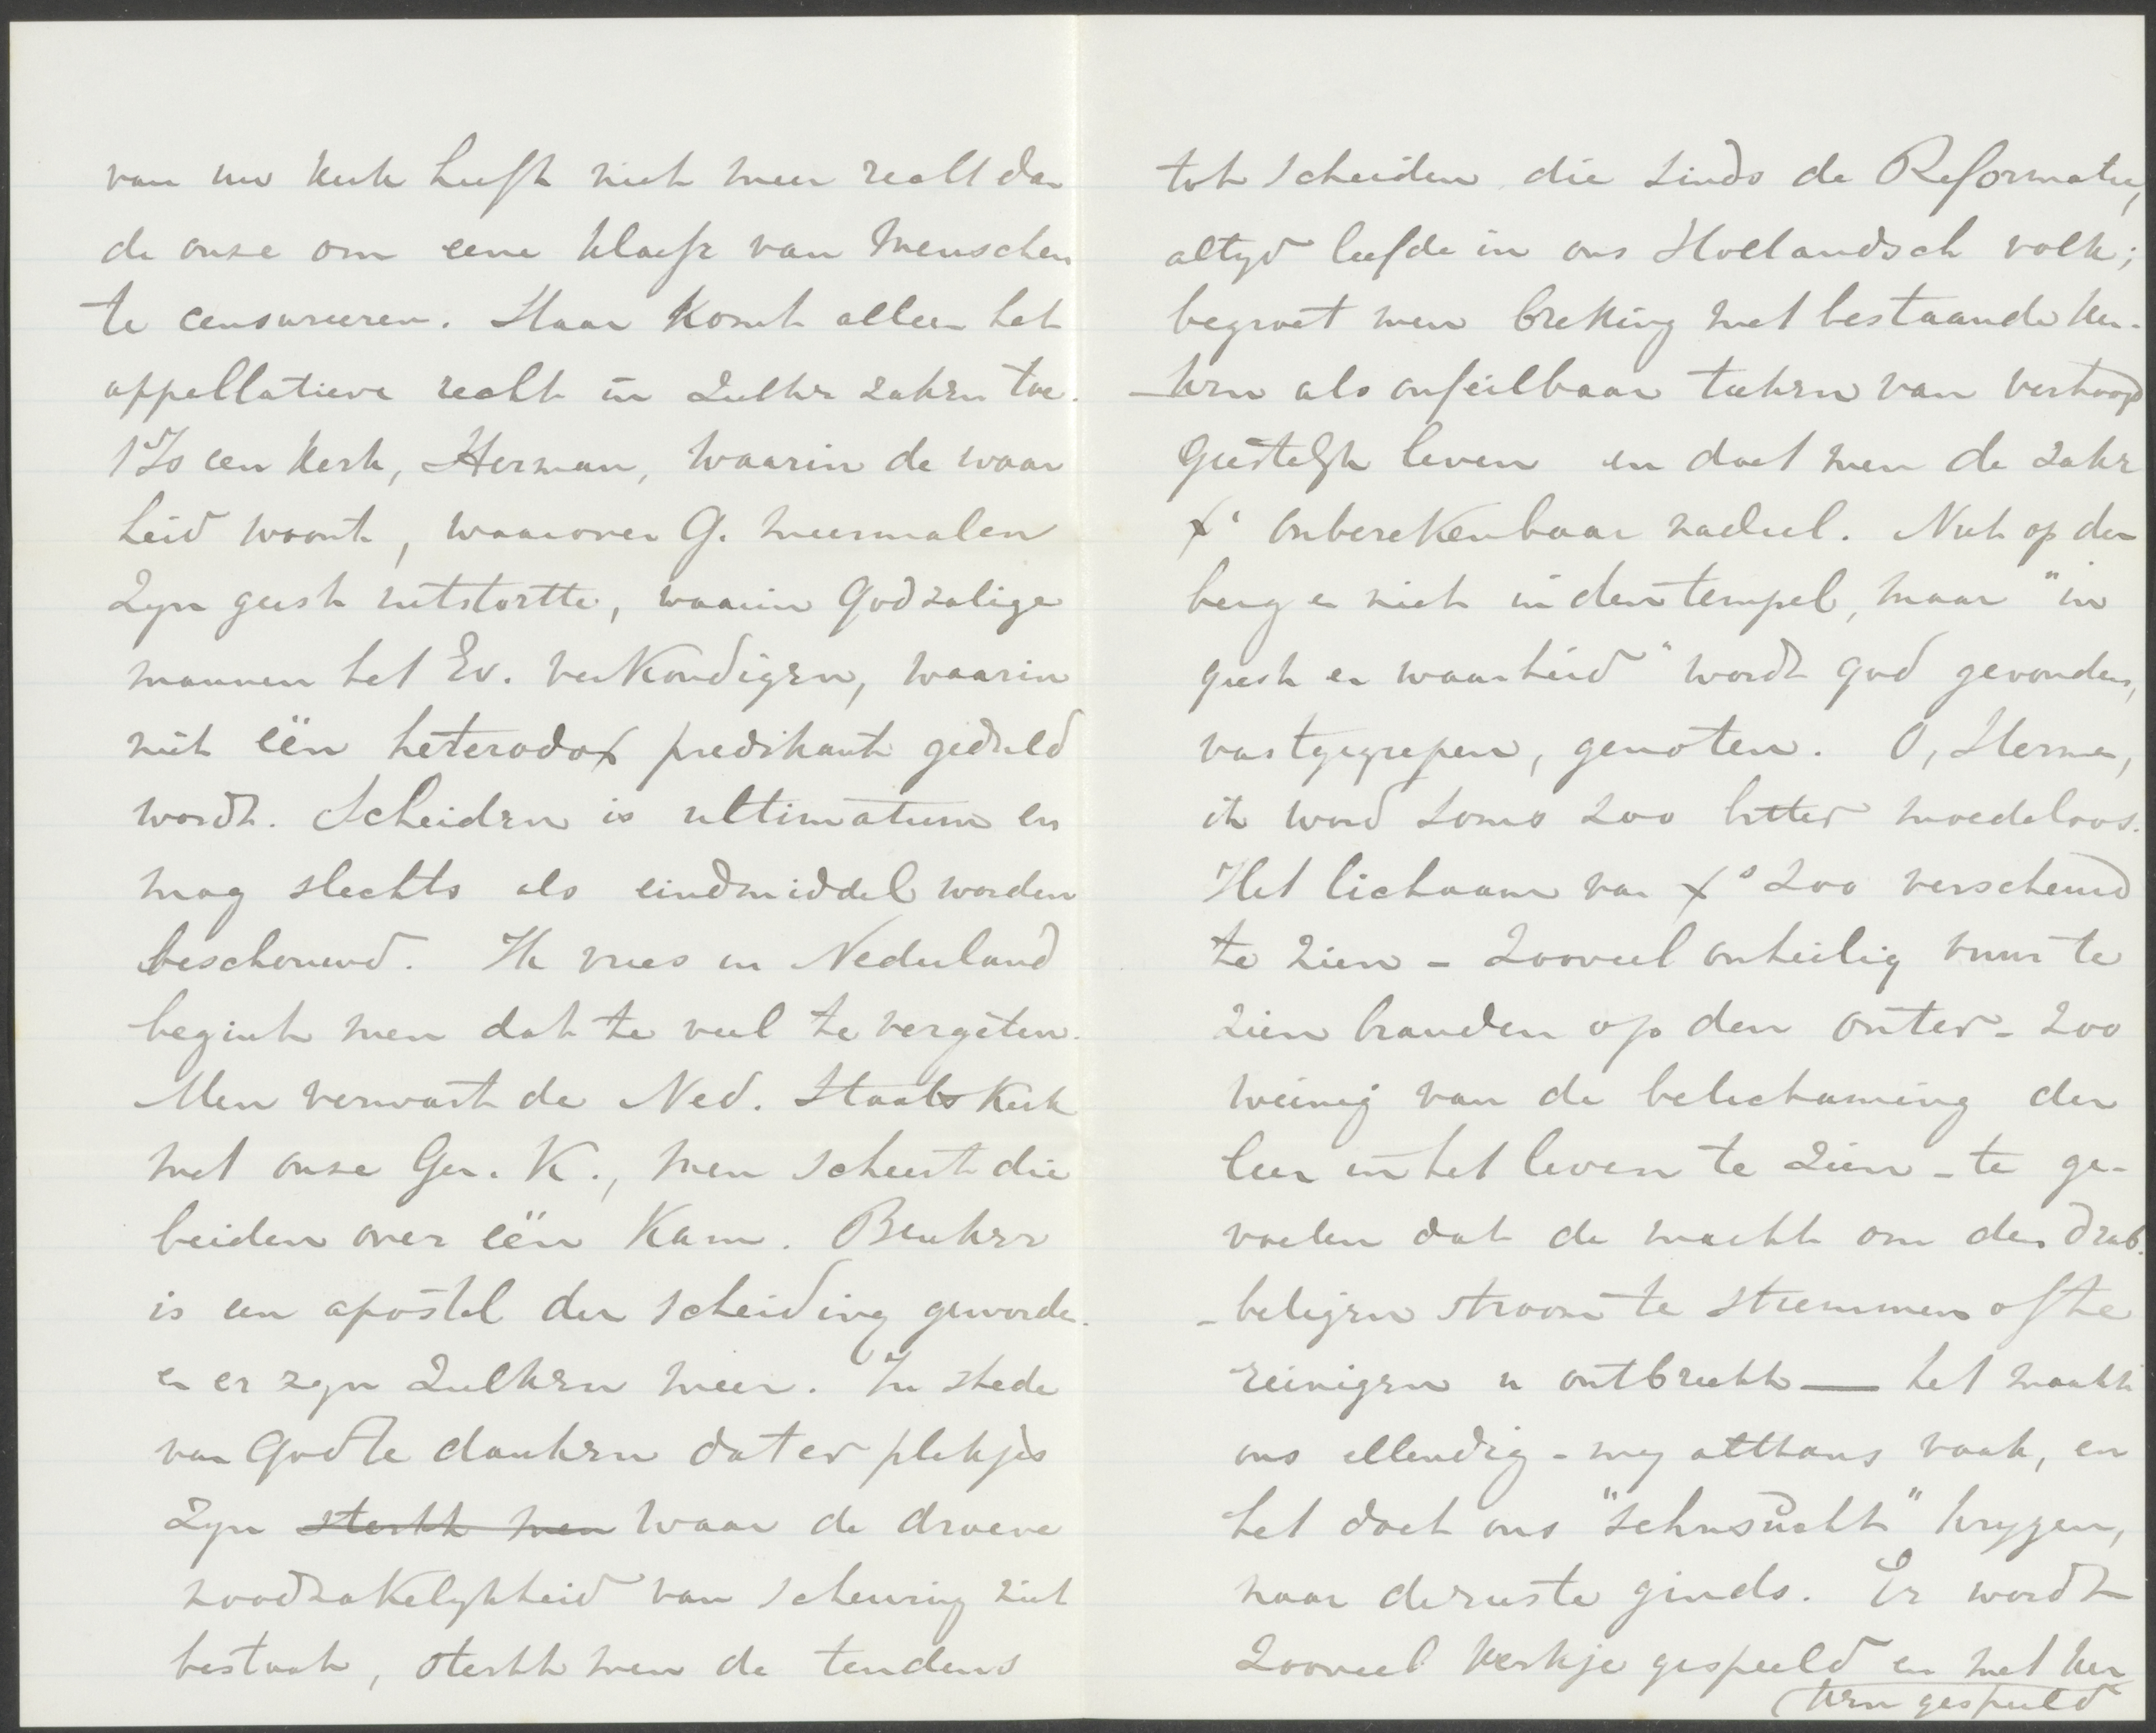 van uw kerk heeft niet meer recht dan
de onze om eene klasse van menschen
te censureeren. Haar komt alleen het
appellatieve recht in zulke zaken toe.
Is een kerk, Herman, waarin de waar
heid woont, waarover G. meermalen
Zyn geest uitstortte, waarin Godzalige
mannen het Ev. verkondigen, waarin
niet één heterodox predikant geduld
wordt. Scheiden is ultimatum en
mag slechts als eindmiddel worden
beschouwd. Ik vrees in Nederland
begint men dat te veel te vergeten.
Men verwart de Ned. Staatskerk
met onze Ger. K., men scheert die
beiden over één kam. Beuker
is een apostel der scheiding geworden
en er zyn zulken meer. In stede
van God te danken dat er plekjes
zyn ~~sterkt men~~ waar de droeve
noodzakelykheid van scheuring niet
bestaat, sterkt men de tendens
tot scheiden die sinds de Reformatie,
altyd leefde in ons Hollandsch volk;
begroet men breking met bestaande ker-
-ken als onfeilbaar teeken van verhoogd
geestelyk leven en doet men de zake
X' onberekenbaar nadeel. Niet op den
berg en niet in den tempel, maar "in
geest en waarheid" wordt God gevonden,
vastgegrepen, genoten. O, Herman,
ik word soms zoo bitter moedeloos.
Het lichaam van Xs zoo verscheurd
te zien - zooveel onheilig vuur te
zien branden op den outer - zoo
weinig van de belichaming der
leer in het leven te zien - te ge-
voelen dat de macht om den drab-
-beligen stroom te stremmen of te
reinigen u ontbreekt — het maakt
ons ellendig - my althans vaak, en
het doet ons "sehnsücht" krygen,
naar de ruste ginds. Er wordt
zooveel kerkje gespeeld en met ker
ken gespeeld